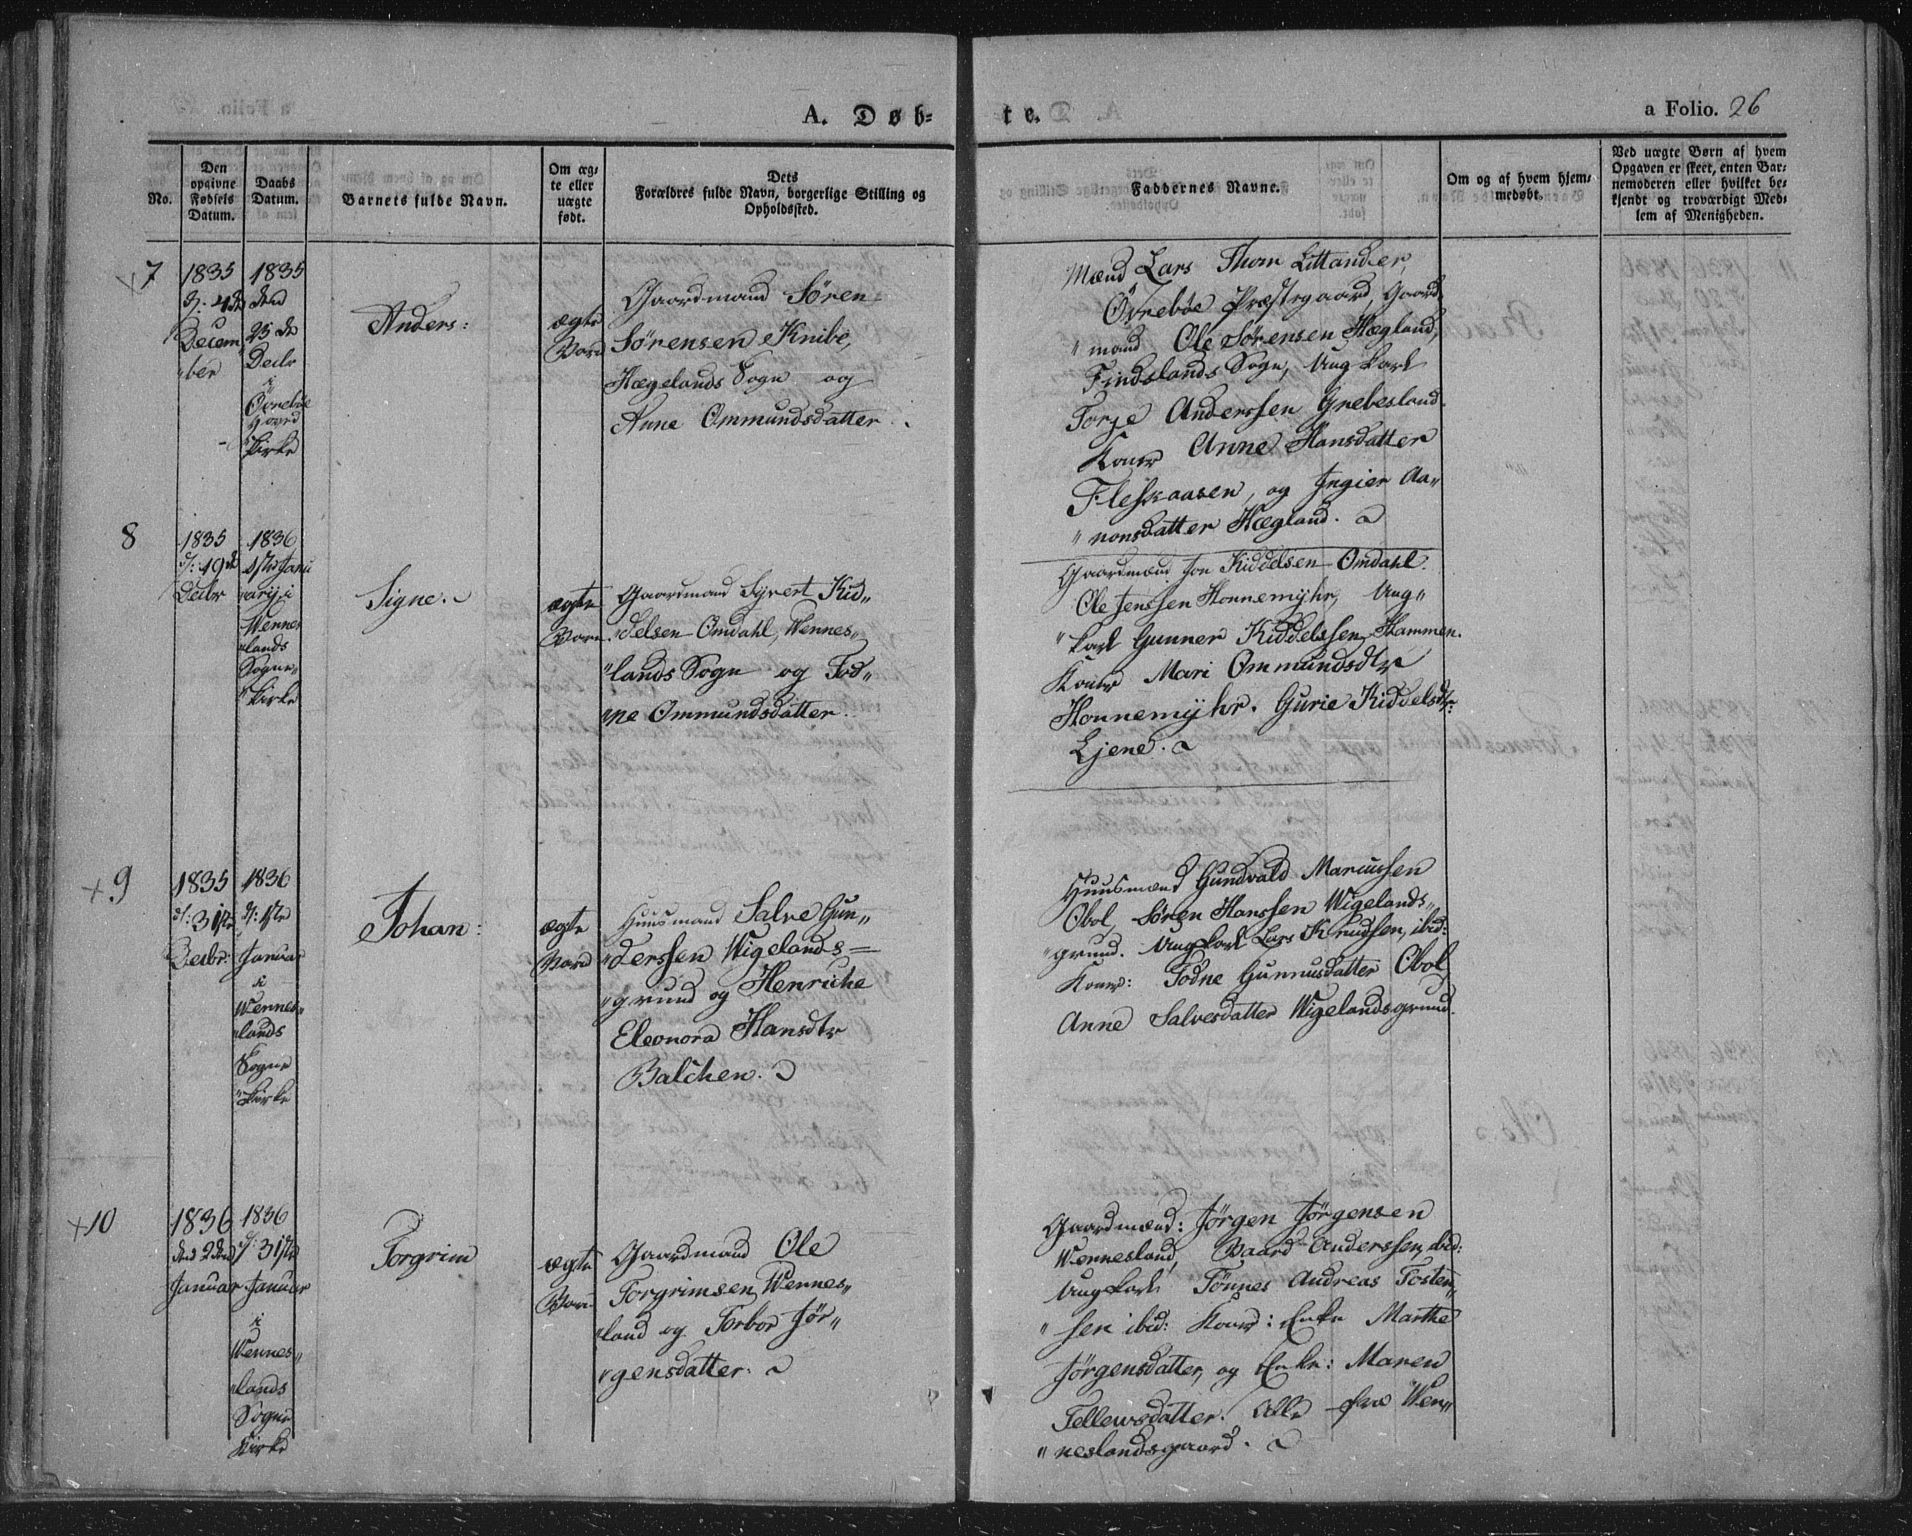 A. Døb=
te.
a Folio. 26
No.
Den opgivne Fødsels Datum.
Daabs Datum.
Barnets fulde Navn.
Om æg=
te eller
uægte
født.
Dets
Forældres fulde Navn, borgerlige Stilling og
Opholdssted.
Faddernes Navne.
Om og af hvem hjem=
medøbt.
Ved uægte Børn af hvem
Opgaven er skeet, enten Bar=
nemoderen eller hvilket be=
kjendt og troværdigt Med=
lem af Menigheden.
7
1835
d: 4de
Decem
"ber
1835
den
25de
Decbr
i
Øvrebøe
Kirke
Anders:
ægte
Barn
Gaardmand Søren
Sørensen Knibe,
Hægelands Sogn og
Anne Ommundsdatter.
Mænd Lars Thom Littander,
Øvrebøe Præstegaard, Gaard
"mand Ole Sørensen Hægland,
Findslands Sogn, Ung Karl
Torje Anderssen Grebesland.
Koner Anne Hansdatter
Fleskaasen, og Ingier Aa"
"nonsdatter Hægland.
8
1835
d: 19de
Decbr
1836
1ste Janu
"arij i
Wennes
"lands
Sogne"
"Kirke
Signe.
ægte
Barn.
Gaardmand Syvert Kid"
"delsen Omdahl, Wennes"
"lands Sogn og Tod"
"ne Ommundsdatter.
Gaardmænd Jon Kiddelsen Omdahl.
Ole Jenssen Honnemyhr, Ung"
"karl Gunner Kiddelssen Hammen.
Koner Mari Ommundsdtr
Honnemyhr. Gurie Kiddelsdtr:
Ljene.
+ 9
1835
d: 31te
Decbr:
1836
d: 1ste
Januar
i
Wennes"
"lands
Sogne
"Kirke
Johan:
ægte
Barn
Huusmand Salve Gun"
"derssen Wigelands=
"grund og Henriche
Eleonora Hansdtr
Balchen.
Huusmænd Gundvald Marcussen
Obol, Søren Hanssen Wigelands"
"grund. Ungkarl Lars Knudsen, ibid:
Koner: Todne Gunnusdatter Obol
Anne Salvesdatter Wigelandsgrund.
+10
1836
den 2den
Januar
1836
d: 31te
Januar
i
Wennes"
"lands
Sogne
Kirke
Torgrim
ægte
Barn
Gaardmand Ole
Torgrimsen Wennes"
"land og Torbor Jør"
"gensdatter.
Gaardmænd: Jørgen Jørgensen
Wennesland, Baard Anderssen ibid:
Ungkarl Tönnes Andreas Tosten"
"sen ibid: Koner: Enke Marthe
Jörgensdatter, og Enke: Maren
Tellewsdatter. Alle fra Wen"
"neslandsgaard.